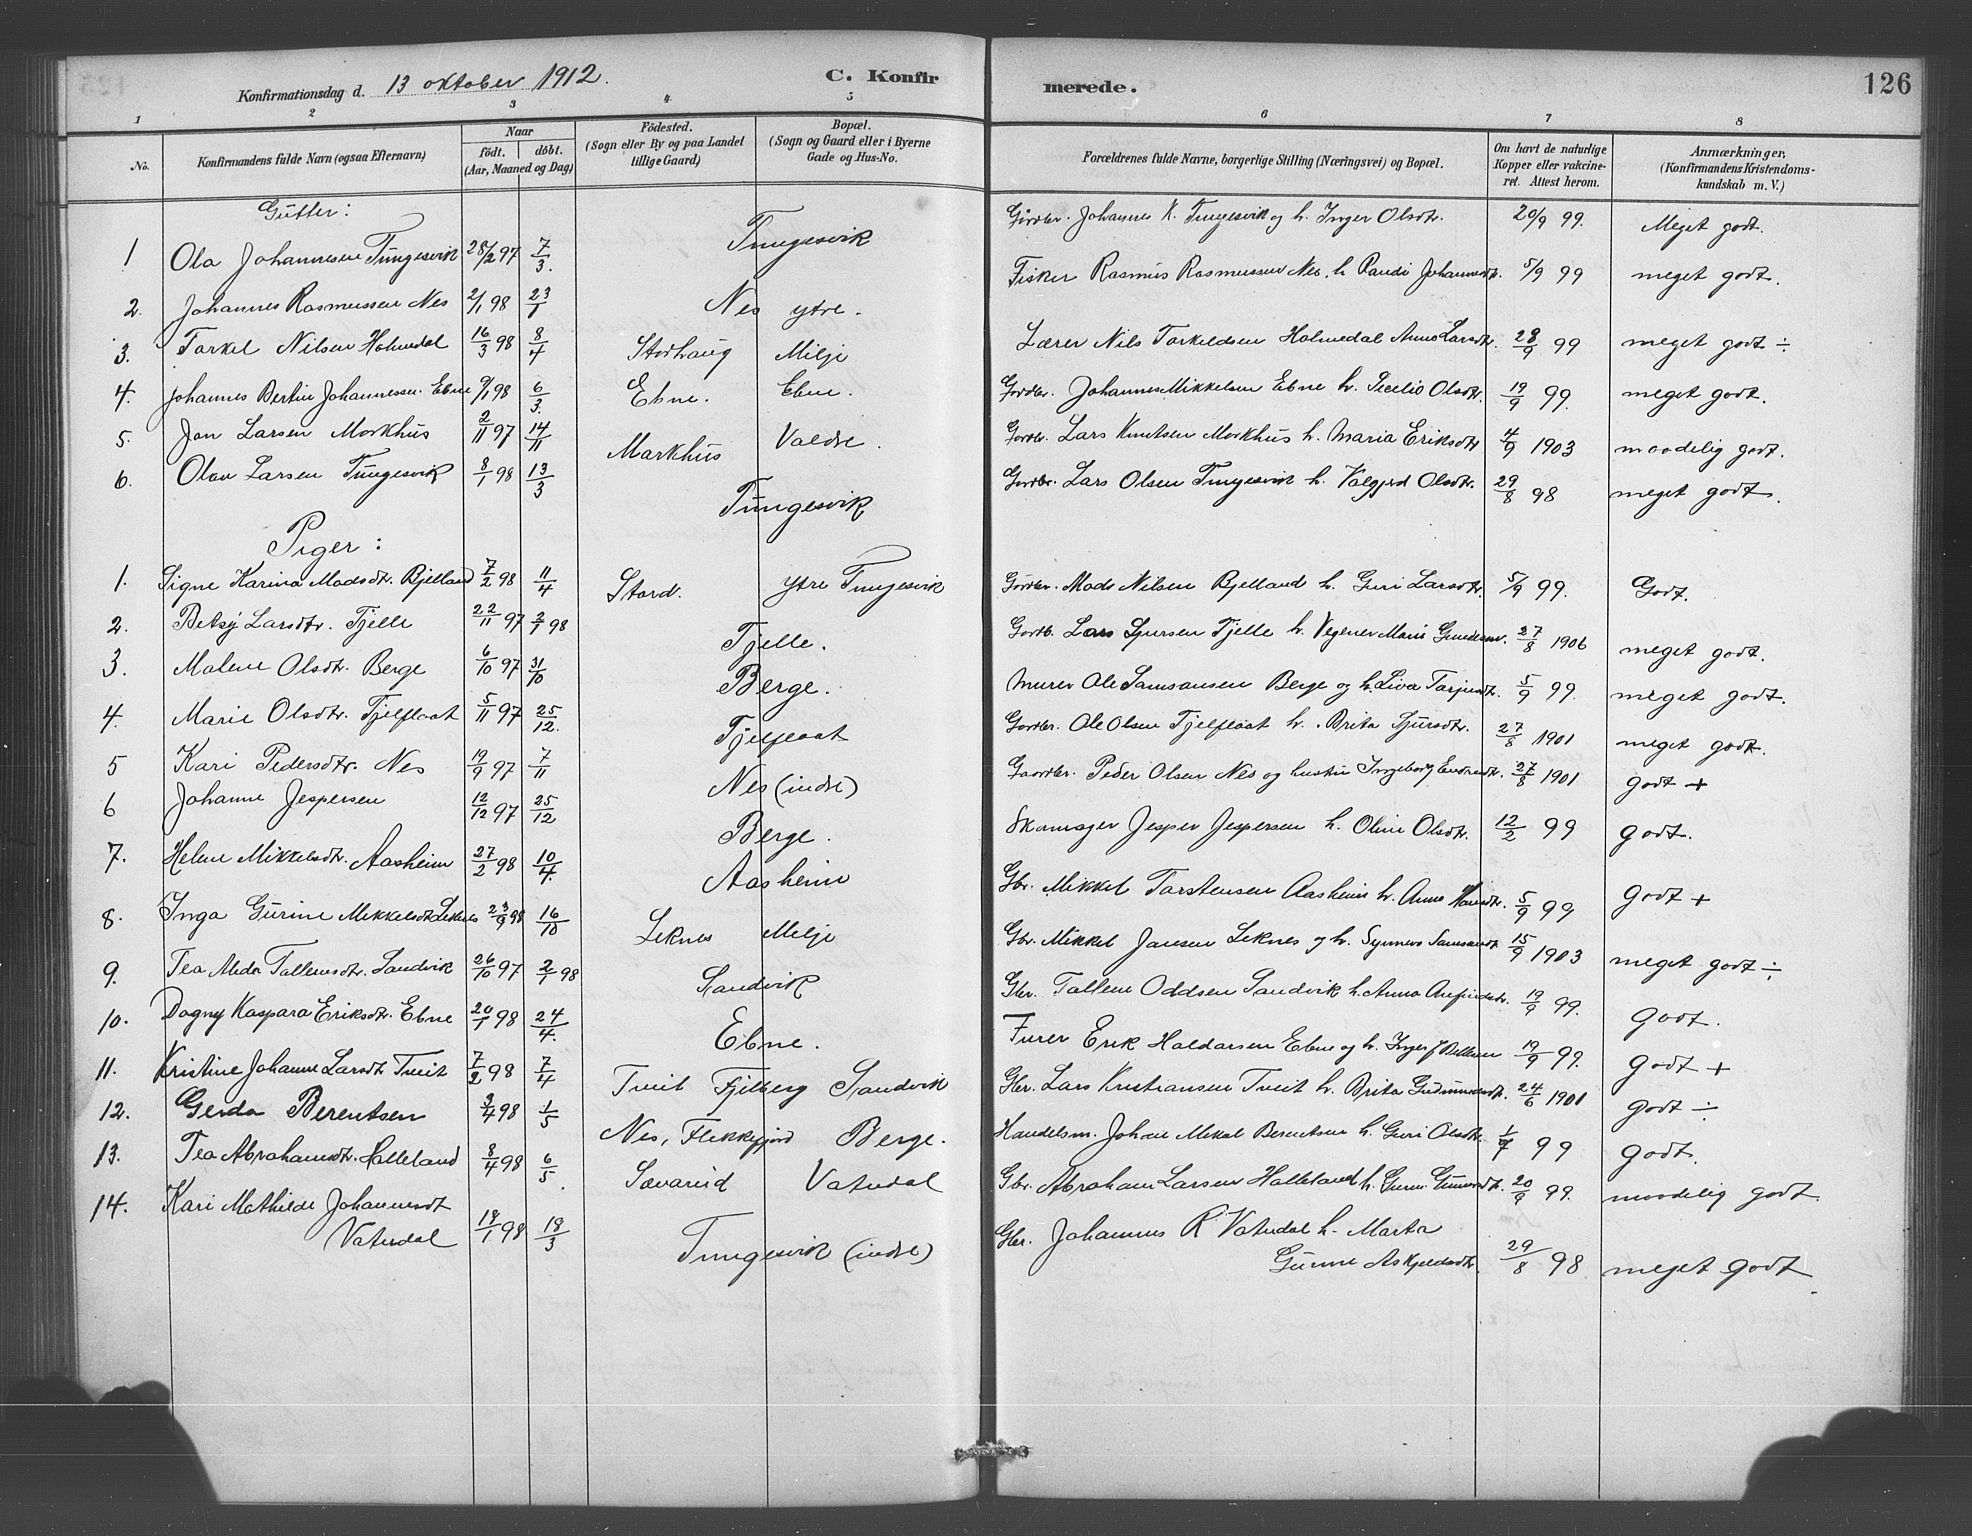 126
Konfirmationsdag d. 13 oktober 1912.
C. Konfir
merede.
1 2 3 4 5 6 7 8
No.
Konfirmandens fulde Navn (ogsaa Efternavn)
Naar
födt. döbt.
(Aar, Maaned og Dag)
Födested.
(Sogn eller By og paa Landet
tillige Gaard)
Bopæl.
(Sogn og Gaard eller i Byerne
Gade og Hus-No.
Forældrenes fulde Navne, borgerlige Stilling (Næringsvei) og Bopæl.
Om havt de naturlige
Kopper eller vakcine-
ret. Attest herom.
Anmærkninger,
(Konfirmandens Kristendoms-
kundskab m. V.)
Gutter:
1 Ola Johannesen Tungesvik 28/2 97 7/3. Tungesvik Gårdbr. Johannes K. Tungesvik og h. Inger Olsdtr. 20/9 99. Meget godt.
2. Johannes Rasmussen Nes 2/1 98 23/1 Nes ytre. Fisker Rasmus Rasmussen Nes, h. Randi Johannesdtr. 5/9 99 meget godt.
3. Torkel Nilsen Holmedal 16/3 98 8/4 Stodhaug Milje Lærer Nils Torkeldsen Holmedal Anna Larsdtr. 28/9 99 meget godt ÷
4. Johannes Bertin Johannessen Ebne 9/1 98 6/3. Ebne. Ebne. Gårdbr. Johannes Mikkelsen Ebne h. Secelia Olsdtr. 19/9 99. meget godt.
5. Jon Larsen Markhus 2/11 97 14/11 Markhus Valdre. Gårdbr. Lars Knutsen Markhus h. Maria Eriksdtr 4/9 1903 maadelig godt.
6. Olav Larsen Tungesvik 8/1 98 13/3 Tungesvik Gårdbr. Lars Olsen Tungesvik h. Valgjerd Olsdtr. 29/8 98 meget godt.
Piger:
1. Signe Karina Madsdtr. Bjelland 7/2 98 11/4 Stord. ytre Tungesvik Gårdbr. Mads Nilsen Bjelland h. Guri Larsdtr. 5/9 99. Godt.
2. Betsy Larsdtr. Tjelle 22/11 97 2/1 98 Tjelle. Gårdb. Lars Tjelle h. Marie 27/8 1906 meget godt.
3. Malene Olsdtr. Berge 6/10 97 31/10 Berge. Murer Ole Samsonsen Berge og h. Liva 5/9 99. meget godt.
4. Marie Olsdtr. Tjelflaat 5/11 97 25/12. Tjelflaat Gårdbr. Ole Olsen Tjelflaat h. Brita Sjursdtr. 27/8 1901 meget godt.
5 Kari Pedersdtr. Nes 19/9 97 7/11 Nes (indre) Gaardbr. Peder Olsen Nes og hustru Ingeborg Endresdtr. 27/8 1901 godt +
6 Johanne Jespersen 12/12 97 25/12 Berge. Skomager Jesper Jespersen h. Oline Olsdtr. 12/2 99 godt.
7. Helene Mikkelsdtr. Aasheim 27/2 98 10/4. Aasheim Gbr. Mikkel Torstensen Aasheim h. Anna 5/9 99 godt +
8. Inga Gurine Mikkelsdtr Leknes 23/9 98 16/10 Leknes Milje Gbr. Mikkel Jansen Leknes og h. Synneva Samsonsdtr 15/9 1903 meget godt ÷
9. Tea Meda Tollemsdtr. Sandvik 26/10 97 2/1 98 Sandvik Gbr. Tollem Oddsen Sandvik h. Anna 19/9 99. Godt.
10. Dagny Kaspara Eriksdtr. Ebne 20/1 98 24/4. Ebne. Furer Erik Haldorsen Ebne og h. Inger J. 19/9 99. godt +
11. Kristine Johanne Larsdtr Tveit 7/2 98 7/4 Tveit Fjelberg Sandvik Gbr. Lars Kristiansen Tveit h. Brita Gudmundsdtr. 24/6 1901 godt ÷
12. Gerda Berentsen 3/4 98 1/5 Nes, Flekkefjord Berge. Handelsm. Johan Mikal Berentsen h. Guri Olsdtr. 1/9 99 godt.
13. Tea Abrahamsdtr. Halleland 8/4 98 6/5. Sævareid Vatsdal Gbr. Abraham Larsen Halleland h. 20/9 99. maadelig godt.
14. Kari Mathilde Johannesdt
Vatsdal 18/1 98 18/3 Tungesvik (indre) Gbr. Johannes R. Vatsdal h. Marta
Gurine Askjeldsdtr. 29/8 98 meget godt.